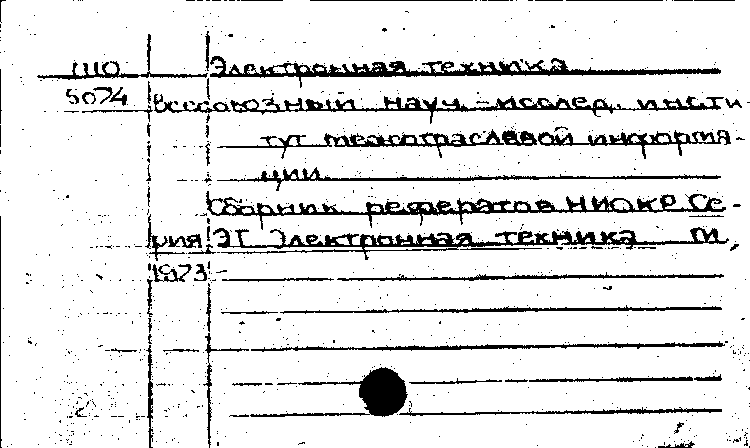 Ш10 Электронная техника
5074 Всесоюзный науч.-исслед. инсти
тут межотраслевой информа-
ции.
Сборник рефератов НИОКР. Се-
рия ЭТ Электронная техника М,
1973-